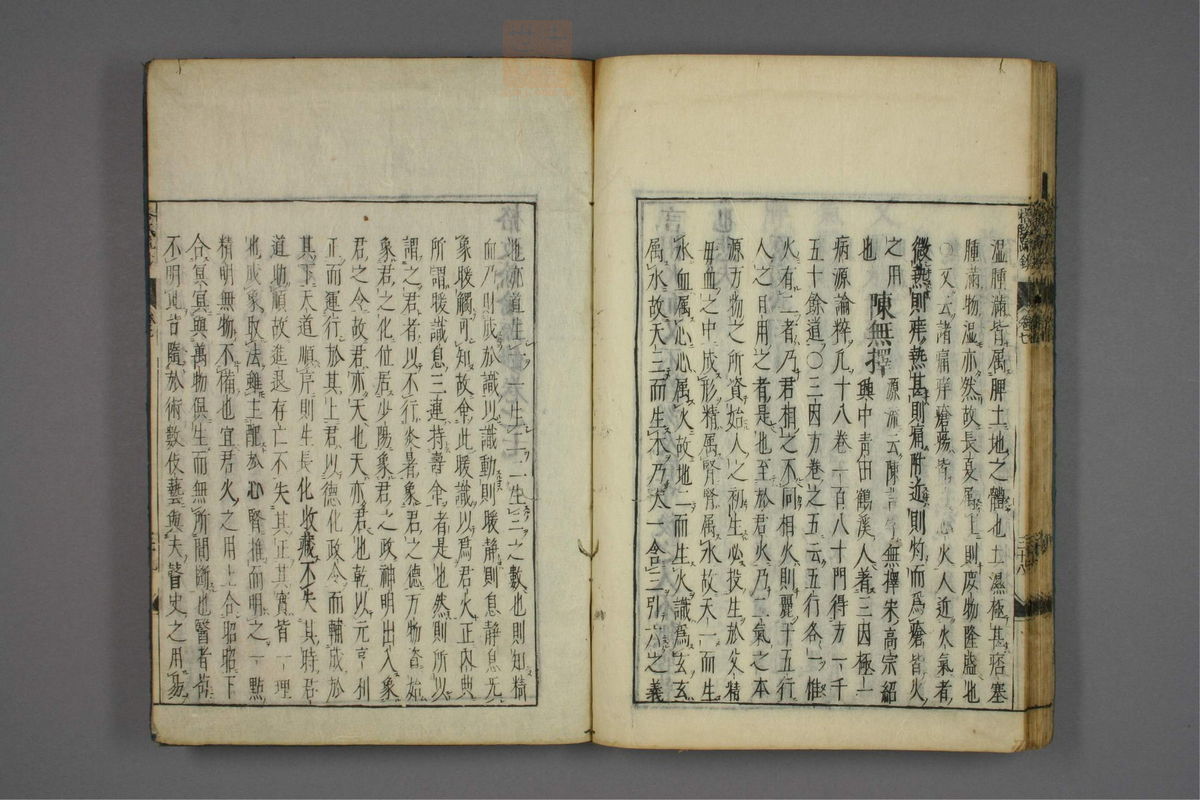 溫腫滿皆属脾土地之體也土濕極甚痞塞
腫滿物溫亦然故長夏属土則庶物隆盛也
○又云諸痛痒瘡瘍皆心火人近火氣者
微熱則痒熱甚則痛附近則灼而爲瘡皆火
之用也
陳無擇
源流云陳言字無擇宋高宗紹
興中青田鶴溪人著三因極一
病源論粹凡十八卷一百八十門得方一千
五十餘道○三因方卷之五云五行各一惟
火有二者乃君相之不同相火則麗于五行
人之日用之者是也至於君火乃二氣之本
源万物之所資始人之初生必投生於父精
母血之中成形精属腎腎属水故天一而生
水血属心心属火故地二而生火識爲玄玄
属水故天三而生木乃太一含三引六之義
也亦道生一一生二二生三之數也則知精
血乃財成於識以識動則暖静則息静息无
象暖觸可知故命此暖識以爲君火正内典
所謂暖識息三連持壽命者是也然則所以
謂之君者以不行炎暑象君之德万物資始
象君之化位居少陽象君之政神明出入象
君之令故君亦天也天亦君也乾以元亨利
正而運行於其上君以德化政令而輔成於
其下天道順序則生長化收藏不失其時君
道助順故進退存亡不失其正其實皆一理
也成象取法雖主配於心腎推而明之一點
精明無物不備也宜君火之用上合昭昭下
合冥冥與万物俱生而無所間斷也醫者苟
不明此皆隨於術數伎藝與夫瞽史之用